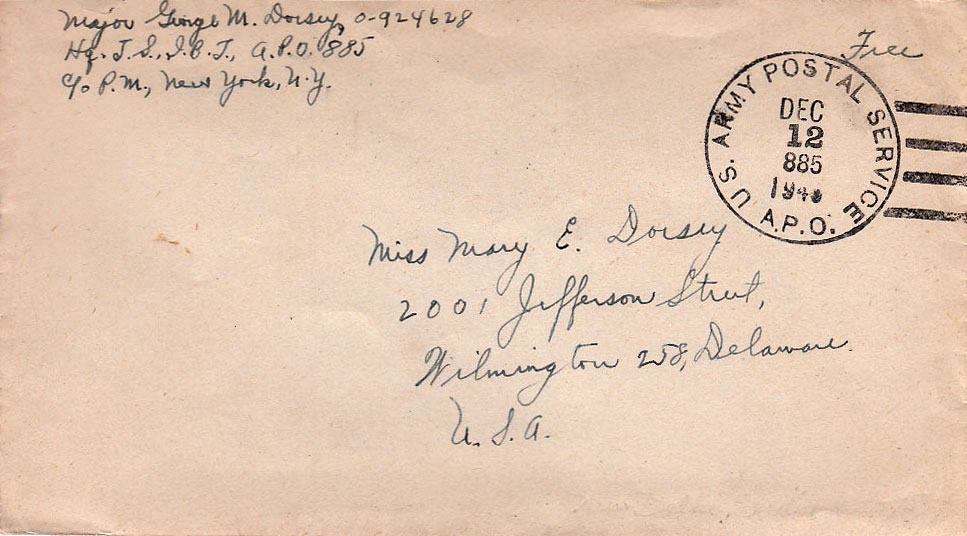 Major George M. Dorsey, O-924628
Hq. I. S., I. B. T., A.P.O. 885
c/o P.M., New York, N.Y.
Free
U.S. ARMY POSTAL SERVICE
DEC
12
885
A.P.O.
Miss Mary E. Dorsey
2001 Jefferson Street,
Wilmington 258, Delaware.
U. S. A.